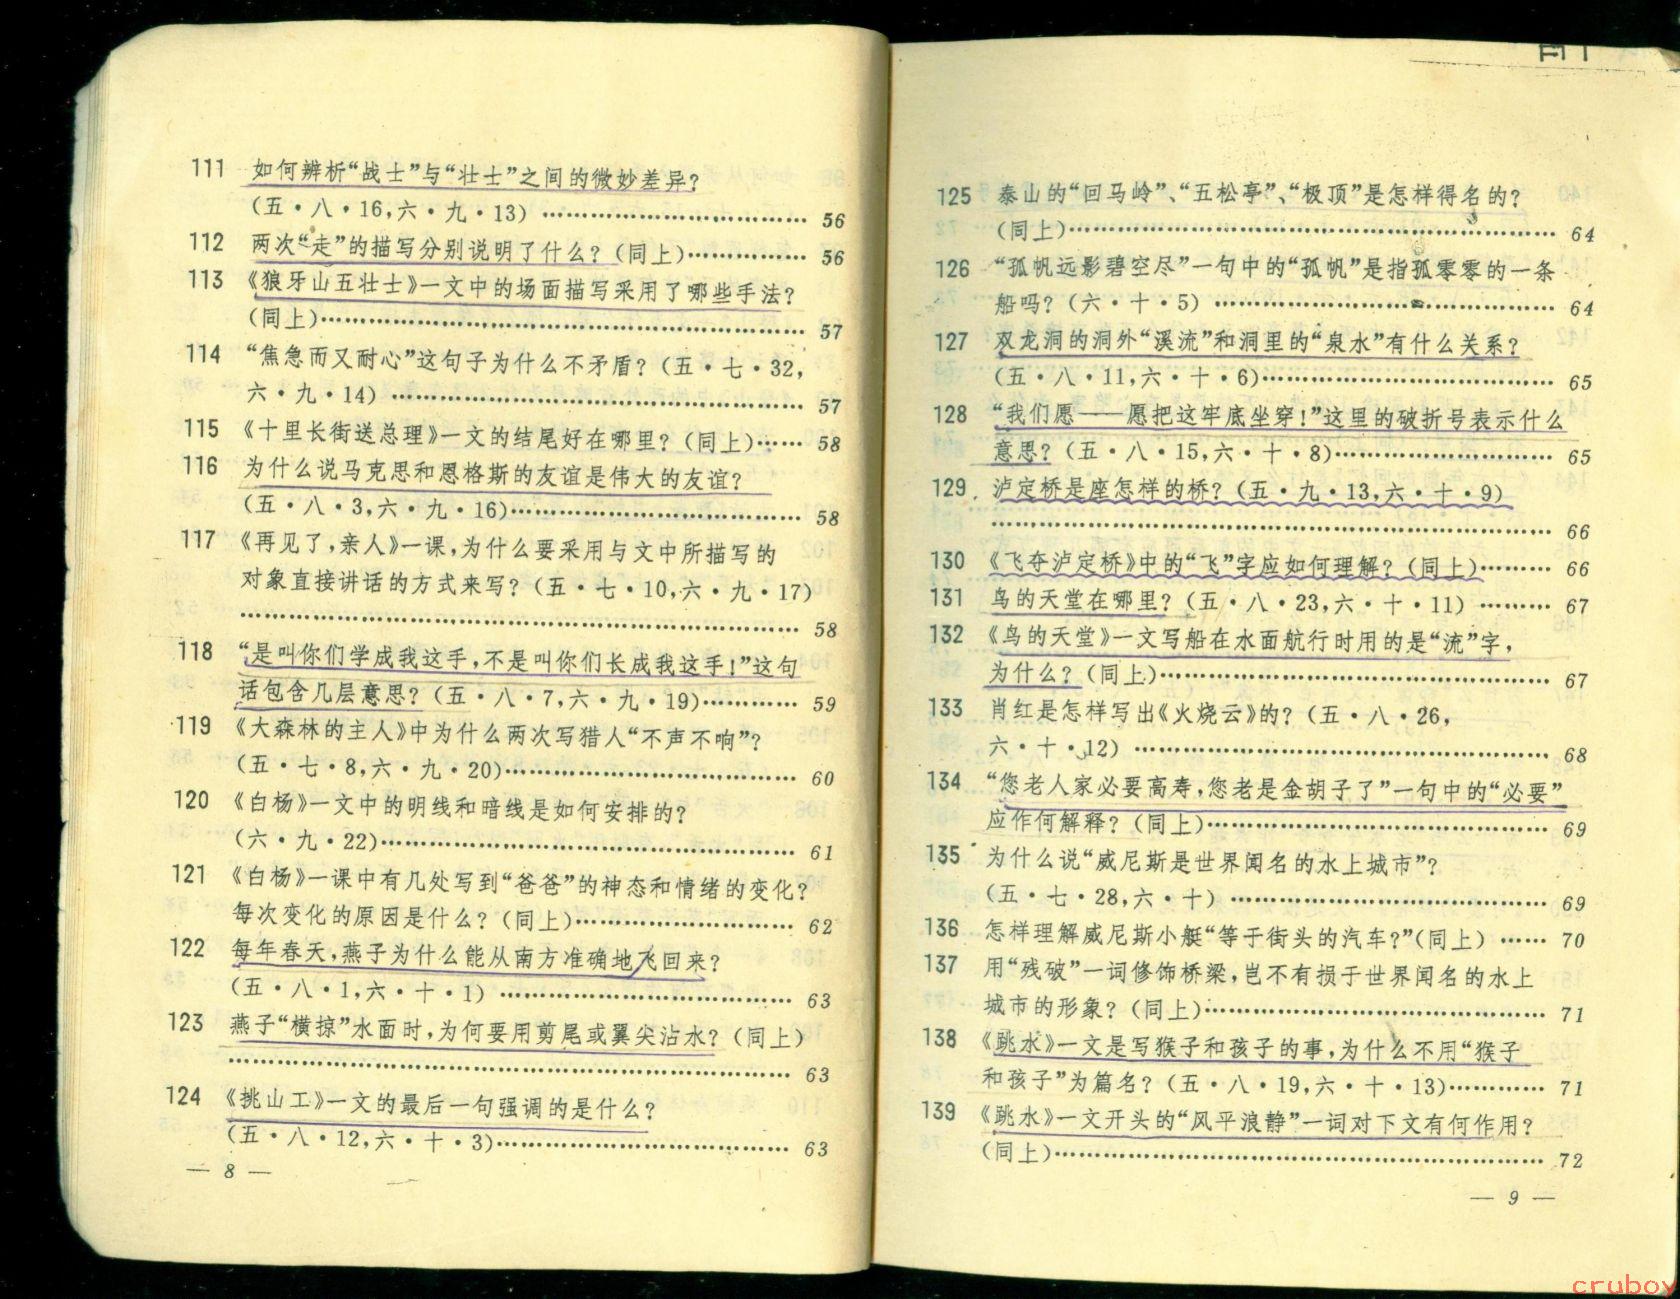 111 如何辨析“战士”与“壮士”之间的微妙差异?
(五·八·16,六·九·13) …………………………… 56
112 两次“走”的描写分别说明了什么?(同上)…………… 56
113 《狼牙山五壮士》一文中的场面描写采用了哪些手法?
(同上)…………………………………………………… 57
114 “焦急而又耐心”这句子为什么不矛盾?(五·七·32,
六·九·14) ……………………………………………… 57
115 《十里长街送总理》一文的结尾好在哪里?(同上)…… 58
116 为什么说马克思和恩格斯的友谊是伟大的友谊?
(五·八·3,六·九·16)……………………………… 58
117 《再见了,亲人》一课,为什么要采用与文中所描写的
对象直接讲话的方式来写?(五·七·10,六·九·17)
…………………………………………………………… 58
118 “是叫你们学成我这手,不是叫你们长成我这手!”这句
话包含几层意思?(五·八·7,六·九·19)………… 59
119 《大森林的主人》中为什么两次写猎人“不声不响”?
(五·七·8,六·九·20)……………………………… 60
120 《白杨》一文中的明线和暗线是如何安排的?
(六·九·22)…………………………………………… 61
121 《白杨》一课中有几处写到“爸爸”的神态和情绪的变化?
每次变化的原因是什么?(同上)……………………… 62
122 每年春天,燕子为什么能从南方准确地飞回来?
(五·八·1,六·十·1) ……………………………… 63
123 燕子“横掠”水面时,为何要用剪尾或翼尖沾水?(同上)
…………………………………………………………… 63
124 《挑山工》一文的最后一句强调的是什么?
(五·八·12,六·十·3)……………………………… 63
— 8 —
125 泰山的“回马岭”、“五松亭”、“极顶”是怎样得名的?
(同上)…………………………………………………… 64
126 “孤帆远影碧空尽”一句中的“孤帆”是指孤零零的一条
船吗?(六·十·5) …………………………………… 64
127 双龙洞的洞外“溪流”和洞里的“泉水”有什么关系?
(五·八·11,六·十·6)……………………………… 65
128 “我们愿——愿把这牢底坐穿!”这里的破折号表示什么
意思?(五·八·15,六·十·8)……………………… 65
129 泸定桥是座怎样的桥?(五·九·13,六·十·9)
…………………………………………………………… 66
130 《飞夺泸定桥》中的“飞”字应如何理解?(同上)……… 66
131 鸟的天堂在哪里?(五·八·23,六·十·11) ……… 67
132 《鸟的天堂》一文写船在水面航行时用的是“流”字,
为什么?(同上)………………………………………… 67
133 肖红是怎样写出《火烧云》的?(五·八·26,
六·十·12) …………………………………………… 68
134 “您老人家必要高寿,您老是金胡子了”一句中的“必要”
应作何解释?(同上)…………………………………… 69
135 为什么说“威尼斯是世界闻名的水上城市”?
(五·七·28,六·十) ………………………………… 69
136 怎样理解威尼斯小艇“等于街头的汽车?”(同上) …… 70
137 用“残破”一词修饰桥梁,岂不有损于世界闻名的水上
城市的形象?(同上)…………………………………… 71
138 《跳水》一文是写猴子和孩子的事,为什么不用“猴子
和孩子”为篇名?(五·八·19,六·十·13)………… 71
139 《跳水》一文开头的“风平浪静”一词对下文有何作用?
(同上)…………………………………………………… 72
— 9 —
cruboy